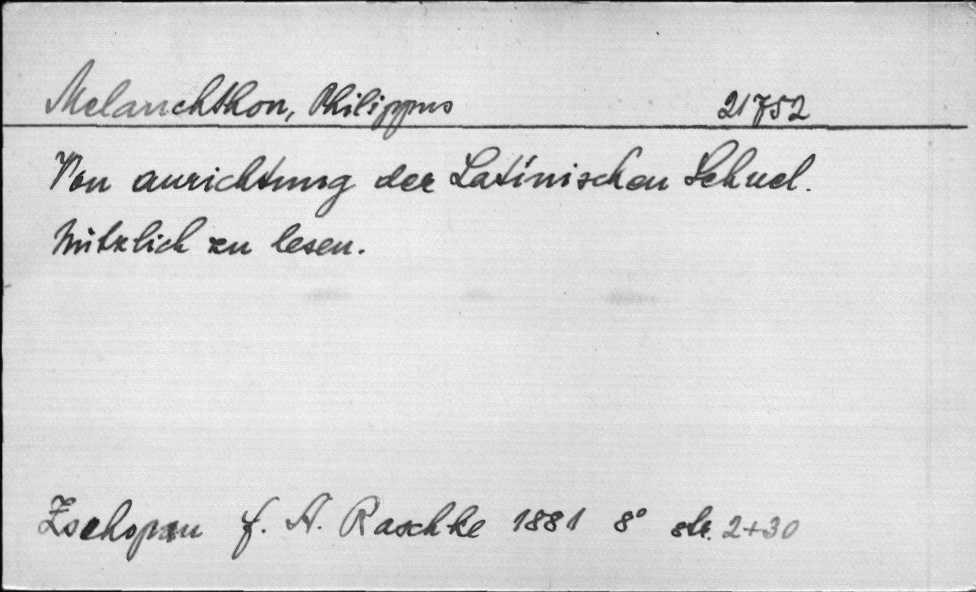 Melanchthon, Philippus 21752
Von anrichtung der Latinischen Schuel.
Nützlich zu lesen.
Zschopau f. A. Raschke 1881 8° str. 2+30